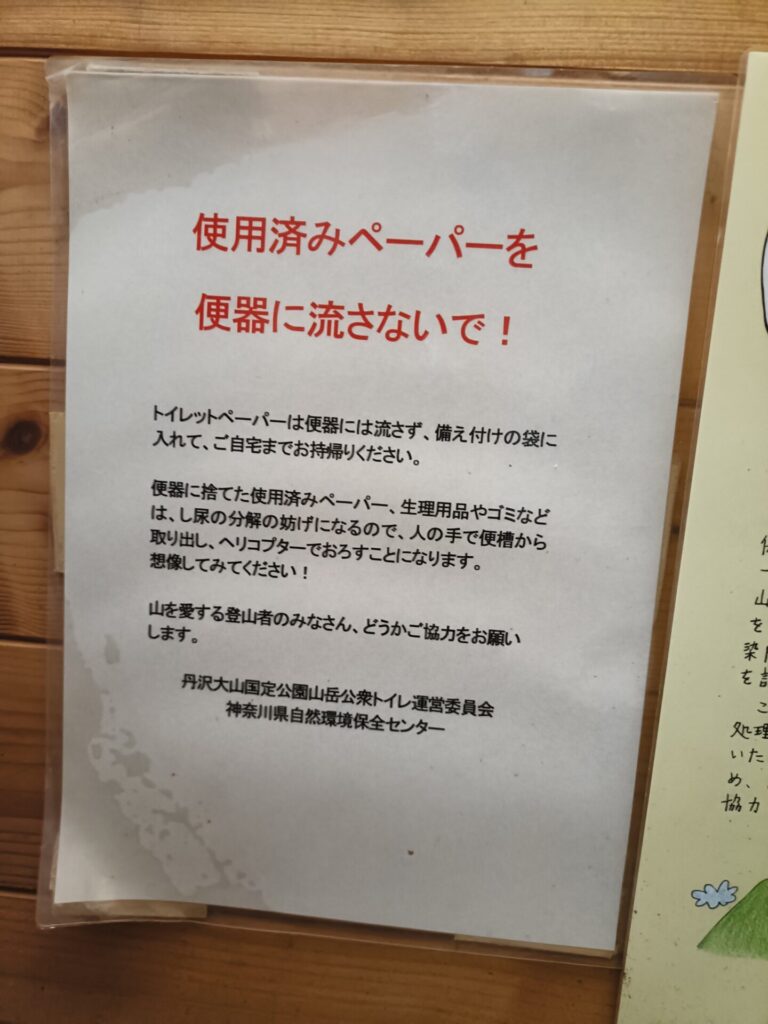 使用済みペーパーを
便器に流さないで！
トイレットペーパーは便器には流さず、備え付けの袋に
入れて、ご自宅までお持帰りください。
便器に捨てた使用済みペーパー、生理用品やゴミなど
は、し尿の分解の妨げになるので、人の手で便槽から
取り出し、ヘリコプターでおろすことになります。
想像してみてください！
山を愛する登山者のみなさん、どうかご協力をお願い
します。
丹沢大山国定公園山岳公衆トイレ運営委員会
神奈川県自然環境保全センター
山
を
染
を
こ
処理
いた
め、
協力